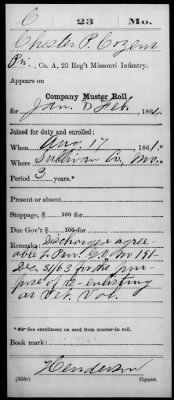 C | 23 | Mo.
Chester P. Cozens
Pri, Co. A, 23 Reg't Missouri Infantry.
Appears on
Company Muster Roll
for Jan & Feb, 1864.
Joined for duty and enrolled:
When Aug 17, 1861.*
Where Sullivan Co, Mo.
Period 3 years.*
Present or absent
Stoppage, $ 100 for
Due Gov't $ 100 for
Remarks: Discharged agree-
able to G.O. No 191
Dec. 31/63 for the pur-
pose of Re-enlisting
as Vet. Vol.
*See enrollment on seed from muster-in roll.
Book mark:
Henderson
(358c) Copyist.